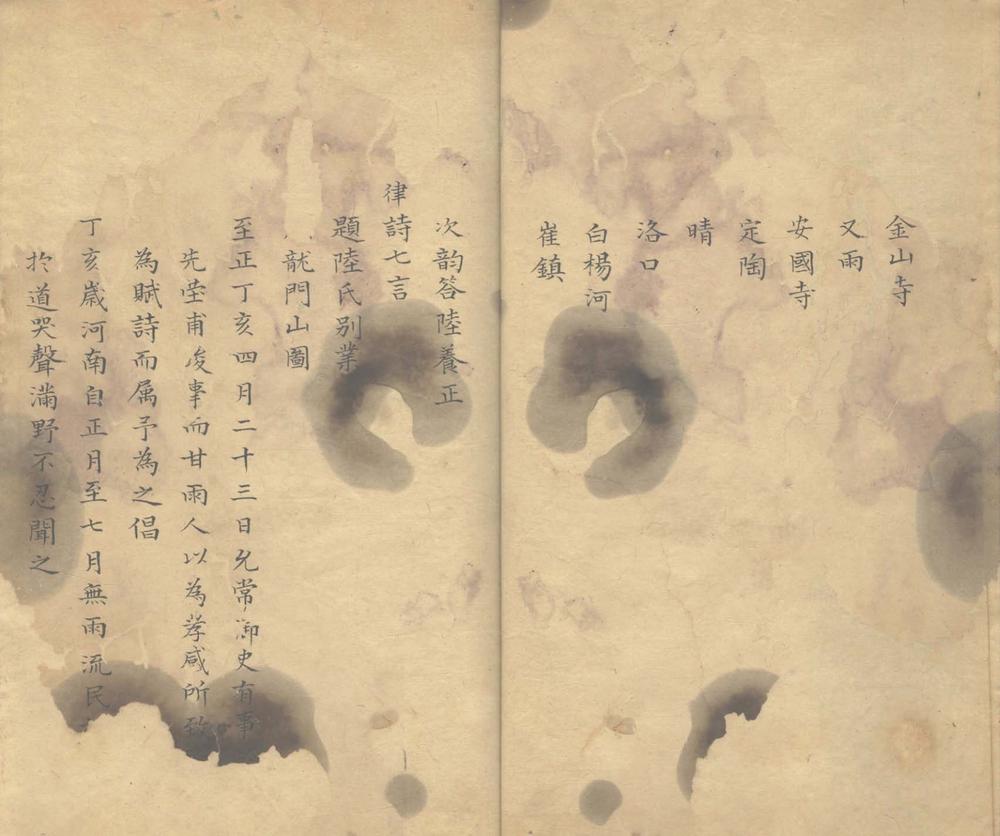 金山寺
又雨
安國寺
定陶
晴
洛口
白楊河
崔鎮
次韵答陸養正
律詩七言
題陸氏别業
龍門山圖
至正丁亥四月二十三日允常御史有事
先塋甫竣事而甘雨人以為孝感所致
為賦詩而属予為之倡
丁亥歲河南自正月至七月無雨流民
扵道哭聲滿野不忍聞之